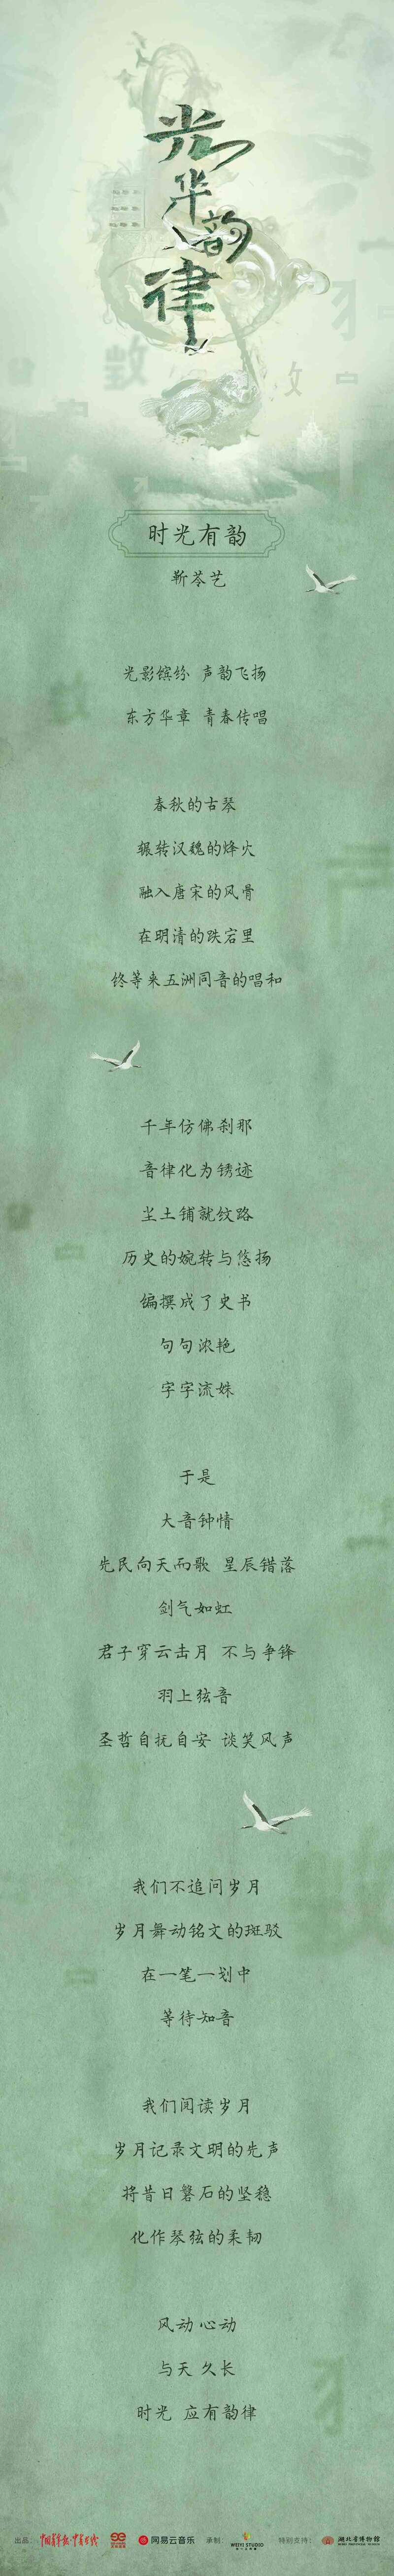 光华韵律
时光有韵
靳苓艺
光影缤纷 声韵飞扬
东方华章 青春传唱
春秋的古琴
辗转汉魏的烽火
融入唐宋的风骨
在明清的跌宕里
终等来五洲同音的唱和
千年仿佛刹那
音律化为锈迹
尘土铺就纹路
历史的婉转与悠扬
编撰成了史书
句句浓艳
字字流姝
于是
大音钟情
先民向天而歌 星辰错落
剑气如虹
君子穿云击月 不与争锋
羽上弦音
圣哲自抚自安 谈笑风声
我们不追问岁月
岁月舞动铭文的斑驳
在一笔一划中
等待知音
我们阅读岁月
岁月记录文明的先声
将昔日磐石的坚稳
化作琴弦的柔韧
风动 心动
与天 久长
时光 应有韵律
出品： 中国青年报·中青在线 网易云音乐 承制： WEIYI STUDIO 特别支持： 湖北省博物馆